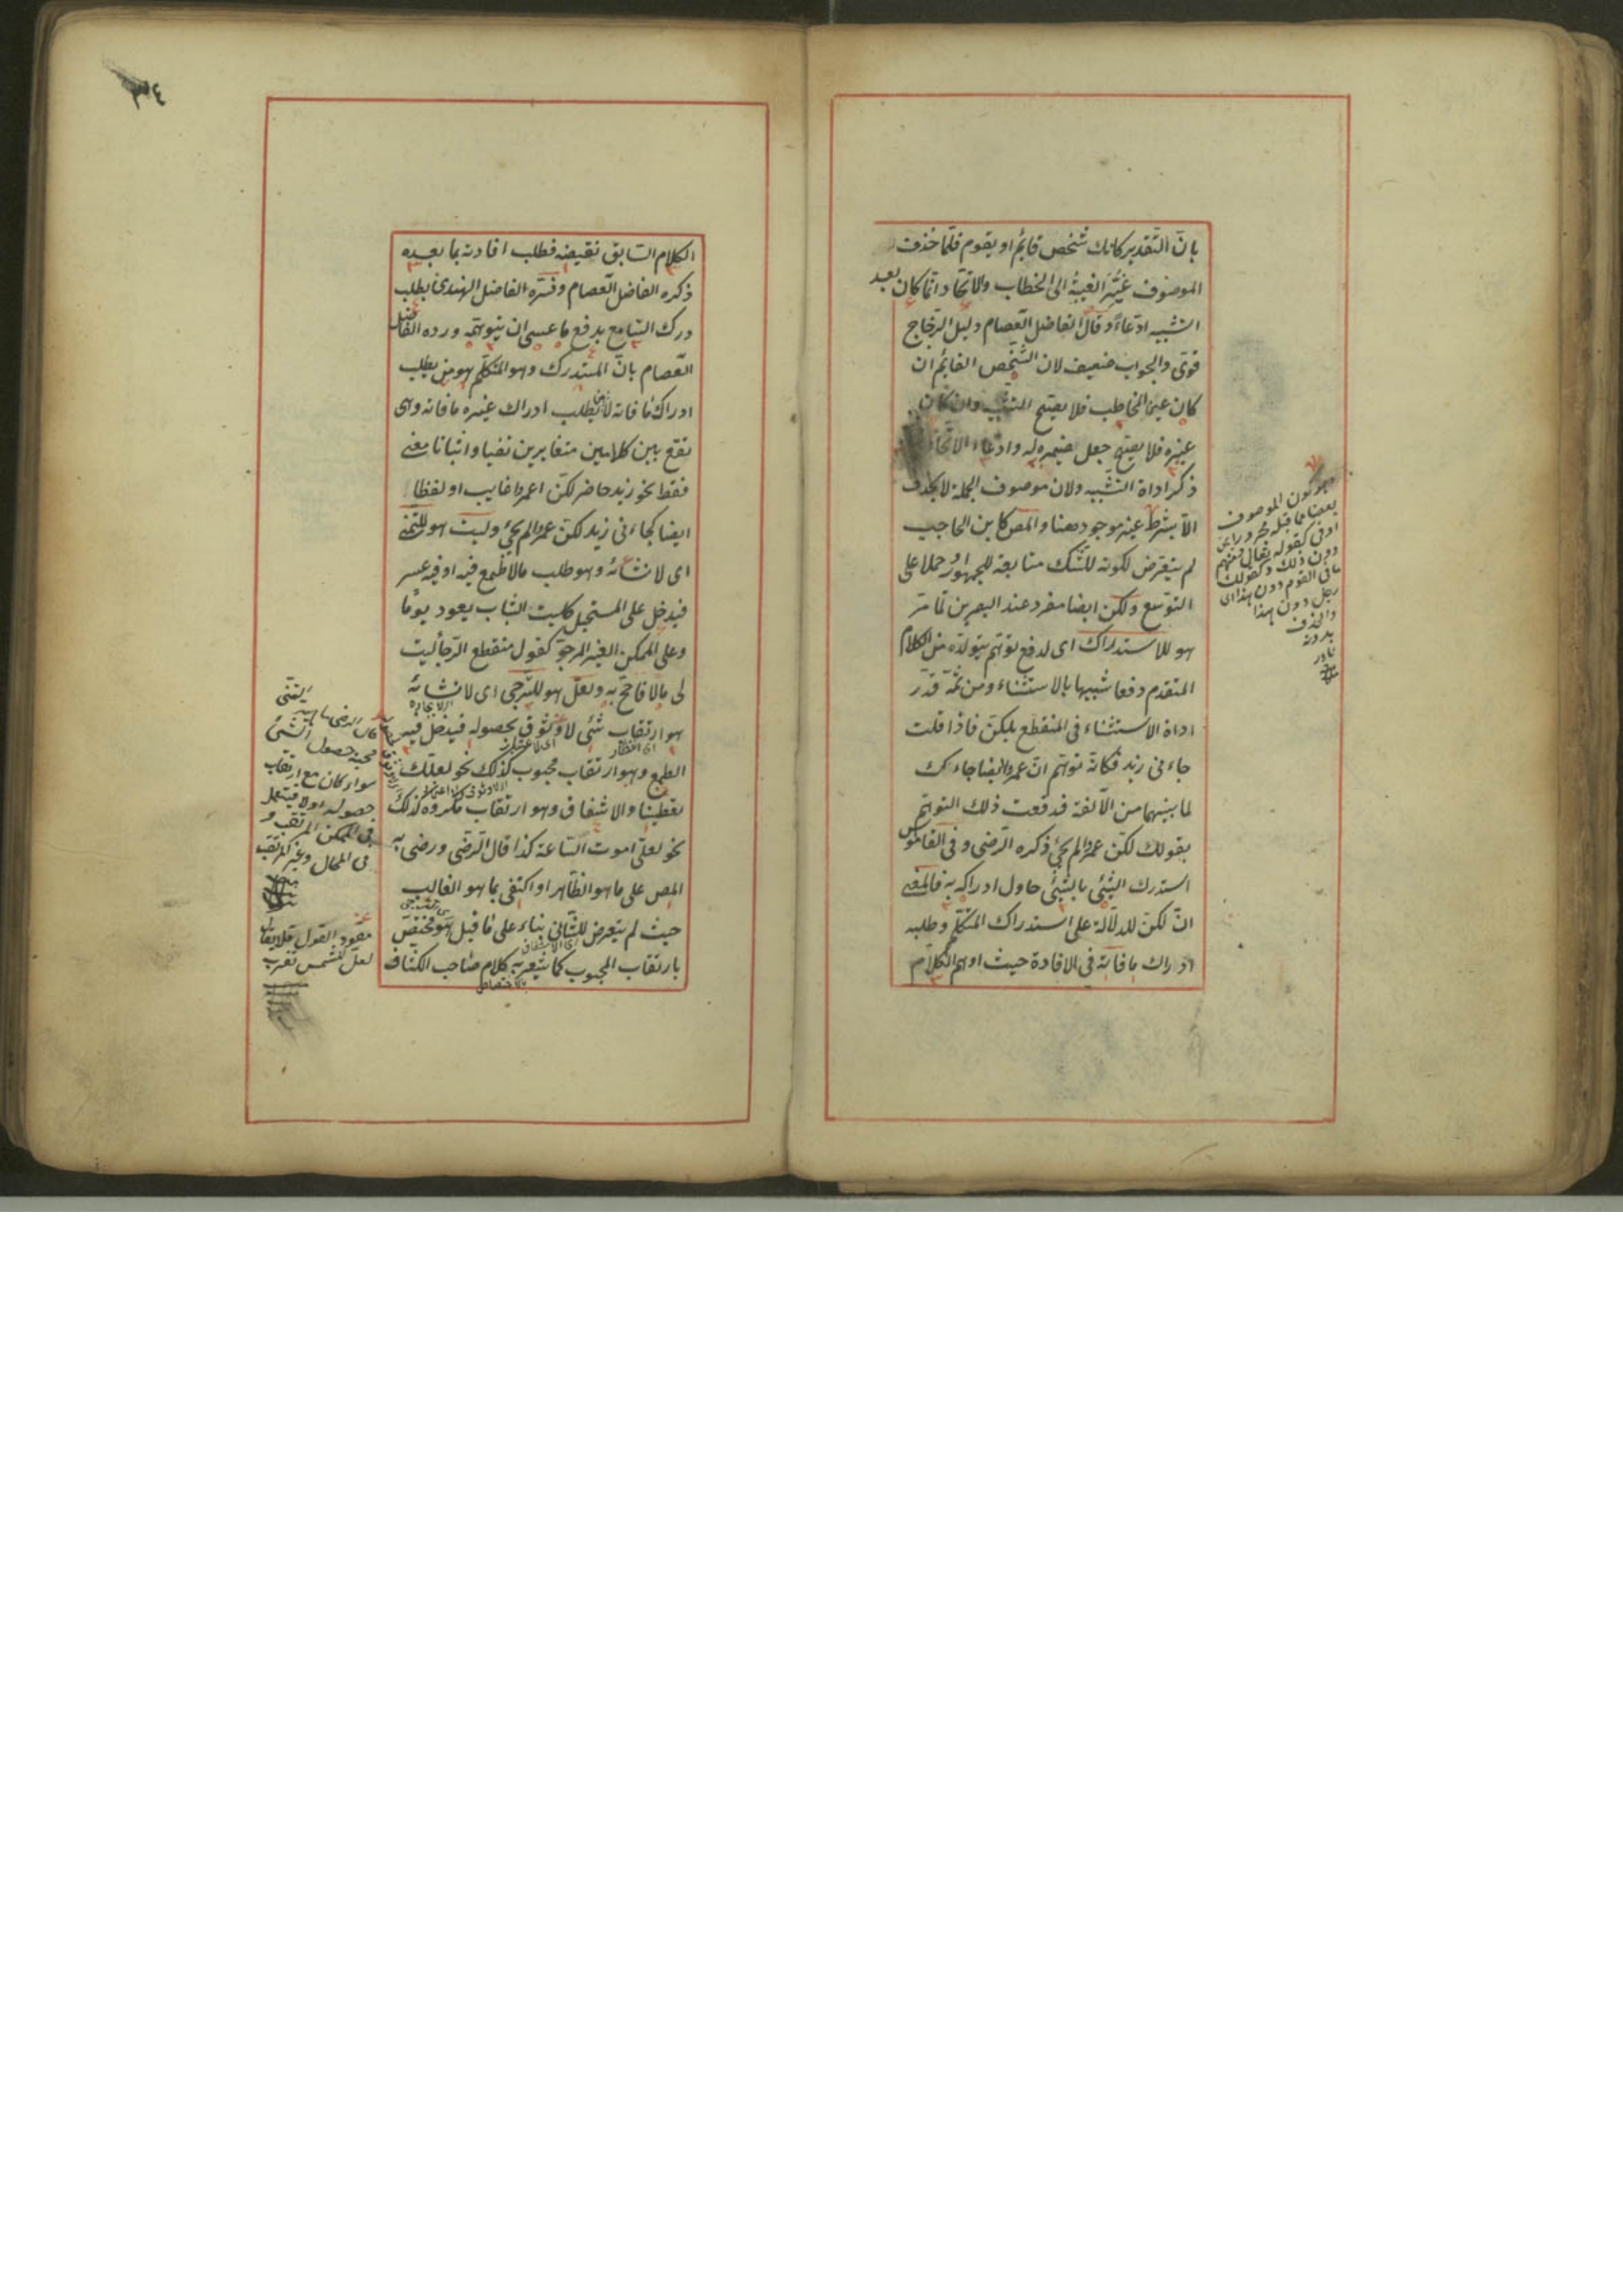 بانّ التّقدير كانك شخص قائم او يقوم فلمّا حذف
الموصوف غيّر الغيبة الى الخطاب والاتّحاد انّما كان بعد
التشبيه ادّعاءً وقال الفاضل العصام دليل الزجّاج
قوىّ والجواب ضعيف لان الشّخص القائم ان
كان عين المخاطب فلا يصحّ التشبيه وان كان
غيره فلا يصحّ جعل ضميره له وادّعاء الاتّحاد
ذكر اداة التّشبيه ولان موصوف الجملة لا يحذف
الّا بشرط غير موجود هنا والمص كابن الحاجب
لم يتعرّض لكونه للشّك متابعة للجمهور او حملا على
التوسّع ولكن ايضا مفرد عند البصريين لما مرّ
هو للاستدراك اى لدفع توهّم يتولّد من الكلام
المتقدم دفعا شبيها بالاستثناء ومن ثمّة قدّر
اداة الاستثناء فى المنقطع بلكنّ فاذا قلت
جاءنى زيد فكانّه توهّم انّ عمروا ايضا جاءك
لما بينهما من الالفة فدفعت ذلك التوهّم
بقولك لكنّ عمروا لم يجئ ذكره الرّضى وفى القاموس
استدرك الشّئ بالشّئ حاول ادراكه به فالمعنى
انّ لكنّ للدلالة على استدراك المتكلّم وطلبه
ادراك ما فاته فى الافادة حيث اوهم الكلام
هو كون الموصوف
بعضا مما قبله مجرورا بمن
او فى كقوله تعالى منهم
دون ذلك وكقولك
ما فى القوم دون هذا اى
رجل دون هذا
والحذف
بدونه
نادر
٣٤
الكلام السّابق نقيضه فطلب افادته بما بعده
ذكره الفاضل العصام وفسّره الفاضل الهندىّ بطلب
درك السّامع بدفع ما عسى ان يتوهّمه وردّه الفاضل
العصام بانّ المستدرك وهو المتكلّم هو من يطلب
ادراك ما فاته لا من يطلب ادراك غيره ما فاته وهى
تقع بين كلامين متغايرين نفيا واثباتا معنى
فقط نحو زيد حاضر لكنّ عمروا غايب او لفظا
ايضا كجاءنى زيد لكنّ عمروا لم يجئ وليت هو للتّمنّى
اى لانشائه وهو طلب ما لا طمع فيه او فيه عسر
فيدخل على المستحيل كليت الشّباب يعود يوما
وعلى الممكن الغير المرجوّ كقول منقطع الرّجاء ليت
لى مالا فاحجّ به ولعلّ هو للتّرجى اى لانشائه
هو ارتقاب شئ لا وثوق بحصوله فيدخل فيه
الطمع وهو ارتقاب محبوب كذلك نحو لعلّك
تعطينا والاشفاق وهو ارتقاب مكروه كذلك
نحو لعلّى اموت السّاعة كذا قال الرّضى ورضى به
المص على ما هو الظّاهر او اكتفى بما هو الغالب
حيث لم يتعرض للثّانى بناء على ما قيل هو مختصّ
بارتقاب المحبوب كما يشعر به كلام صاحب الكشّاف
قال الرضى ماهية التمنّى
محبّة حصول الشئ
سواء كان مع ارتقاب
حصوله او لا فيستعمل
فى الممكن المرتقب و
فى المحال وغير المرتقب
مقصود القول فلا يقال
لعلّ الشمس تغرب